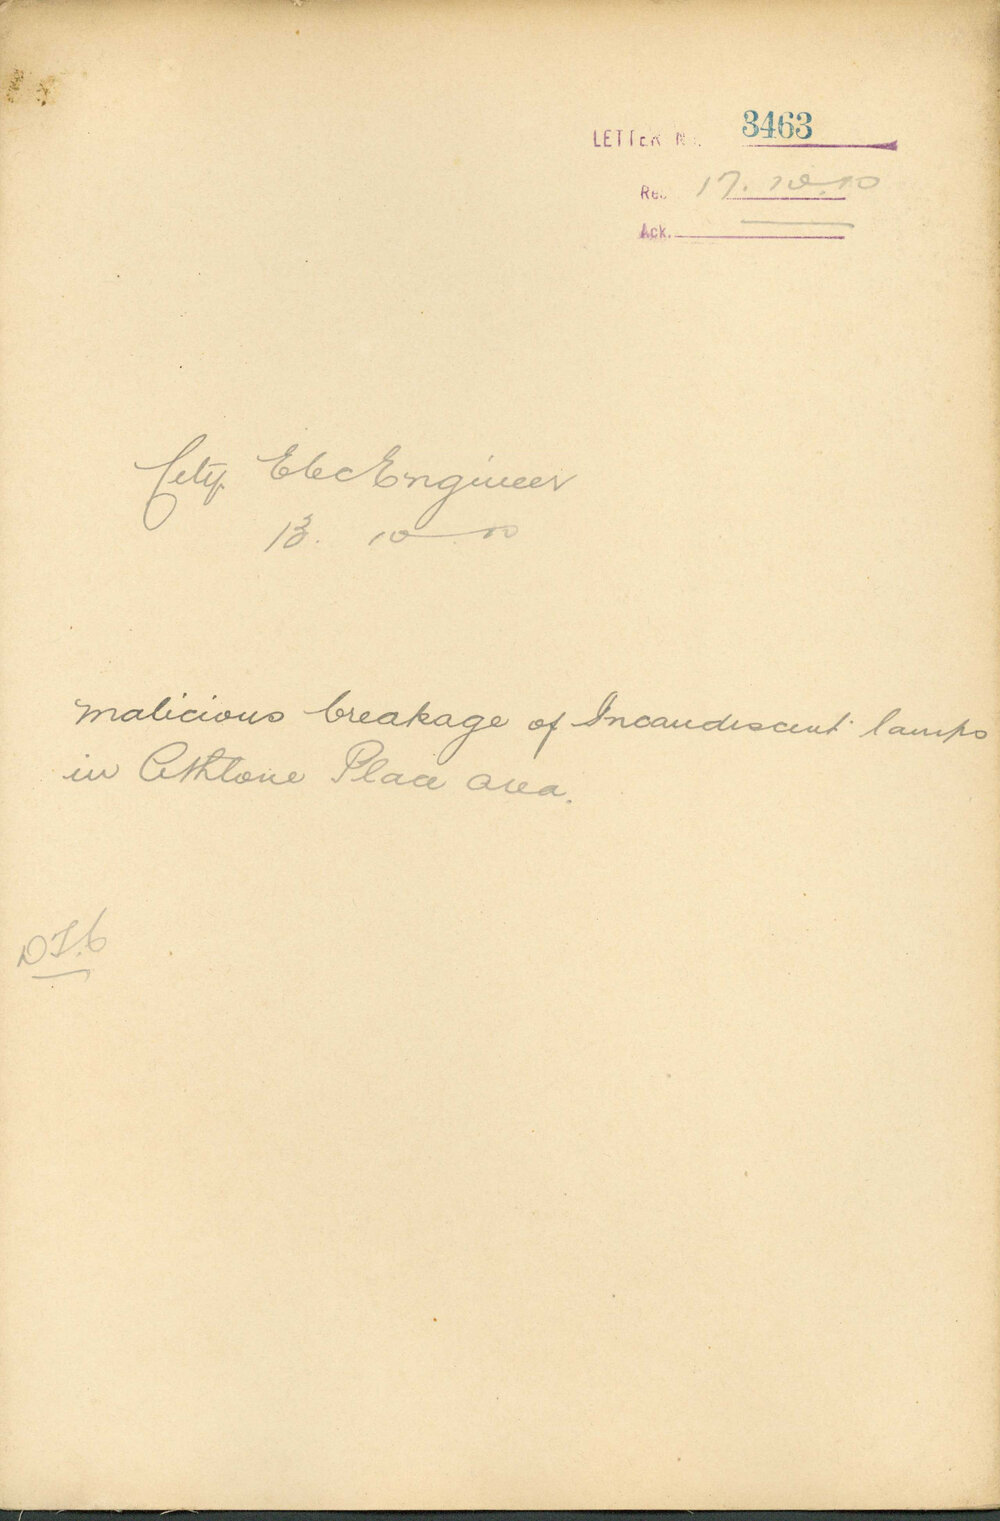 LETTER No. 3463
Rec. 17. 10. 10
Ack.
City Elec Engineer
13. 10 10
malicious breakage of Incandescent lamps
in Athlone Place area.